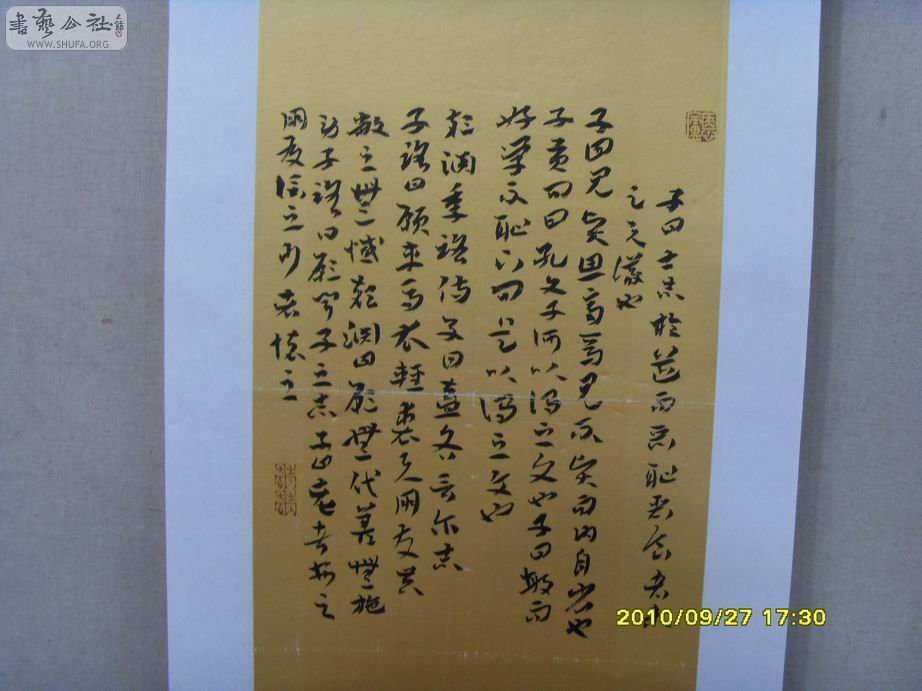 書藝公社
WWW.SHUFA.ORG
子曰士志於道而恥惡食者未
足與議也
子曰見賢思齊焉見不賢而內自省也
子貢問曰孔文子何以謂之文也子曰敏而
好學不恥下問是以謂之文也
顏淵季路侍子曰盍各言爾志
子路曰願車馬衣輕裘與朋友共
敝之無憾顏淵曰願無伐善無施
勞子路曰願聞子之志子曰老者安之
朋友信之少者懷之
2010/09/27 17:30